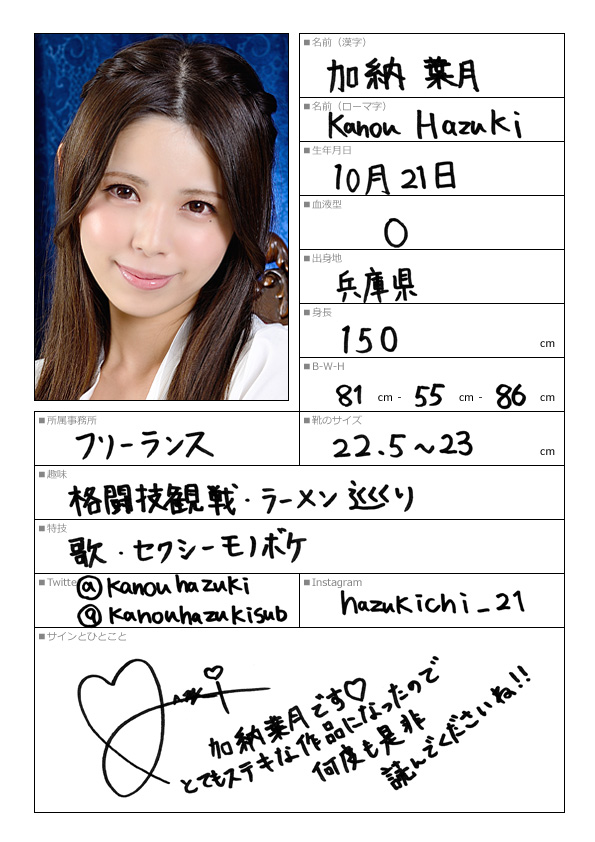 ■名前（漢字）
加納 葉月
■名前（ローマ字）
Kanou Hazuki
■生年月日
10月21日
■血液型
O
■出身地
兵庫県
■身長
150 cm
■B-W-H
81 cm - 55 cm - 86 cm
■所属事務所
フリーランス
■靴のサイズ
22.5～23 cm
■趣味
格闘技観戦・ラーメン巡り
■特技
歌・セクシーモノボケ
■Twitte
@kanouhazuki
@kanouhazukisub
■Instagram
hazukichi_21
■サインとひとこと
加納葉月です♡
とてもステキな作品になったので
何度も是非
読んでくださいね!!